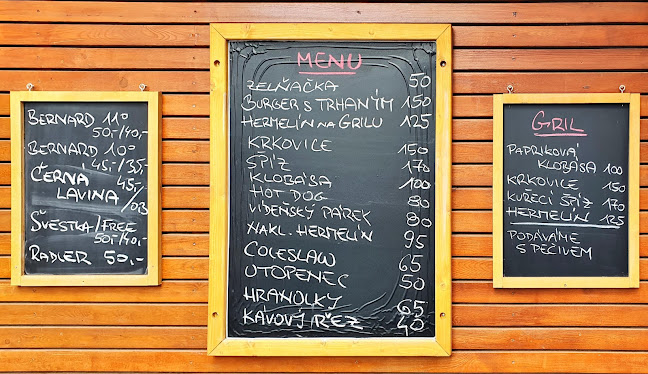 BERNARD 11°
50,-/40,-
BERNARD 10°
45,-/35,-
ČERNÁ 45,-
LAVINA /OB
ŠVESTKA/FREE
50,-/40,-
RADLER 50,-
MENU
ZELŇAČKA 50
BURGER S TRHANÝM 150
HERMELÍN NA GRILU 125
KRKOVICE 150
ŠPÍZ 170
KLOBÁSA 100
HOT DOG 80
VÍDEŇSKÝ PÁREK 80
NAKL. HERMELÍN 95
COLESLAW 65
UTOPENEC 50
HRANOLKY 65
KÁVOVÝ ŘEZ 40
GRIL
PAPRIKOVÁ
KLOBÁSA 100
KRKOVICE 150
KUŘECÍ ŠPÍZ 170
HERMELÍN 125
PODÁVÁME
S PEČIVEM